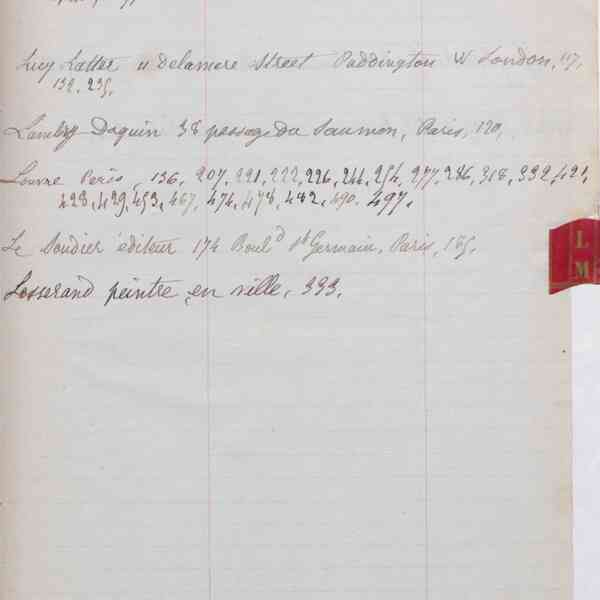 Lucy Latter 11 delamere street Paddington W London, 117,
132, 235,
Lambry Daquin 38 passage du Saumon, Paris, 120,
Louvre Paris, 136, 207, 221, 222, 226, 244, 254, 277, 286, 318, 332, 421,
428, 429, 453, 467, 476, 478, 482, 490, 497.
Le Soudier éditeur 174 Boul^d S^t Germain, Paris, 185,
Losserand peintre en ville, 393.
L
M